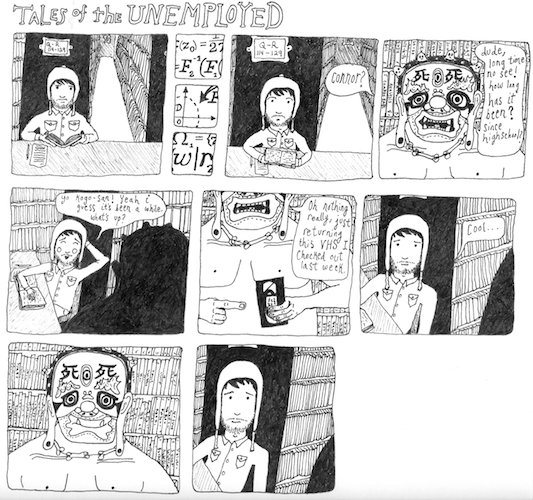 TALES of the UNEMPLOYED
Q-R
114-129
F(Z₀) = 1/27
=F₂⁻¹(F₁(
D
Ω₁ = {ζ
w|r
Q-R
114-129
connor?
死 死
dude,
long time
no see!
how long
has it
been?
since
highschool?
yo Kogo-san! Yeah i
guess it's been a while
what's up?
Oh nothing
really, just
returning
this VHS I
checked out
last week.
Cool...
死 死